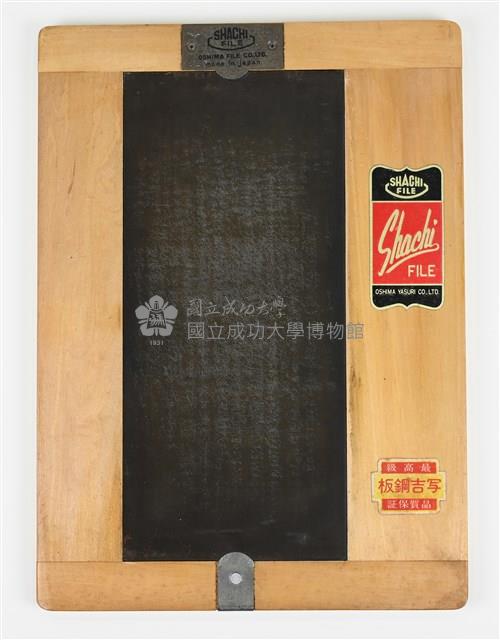 SHACHI
FILE
OSHIMA FILE CO., LTD.
made in japan
SHACHI
FILE
Shachi
FILE
OSHIMA YASURI CO., LTD.
國立成功大學
國立成功大學博物館
1931
級高最
板鋼吉写
証保質品